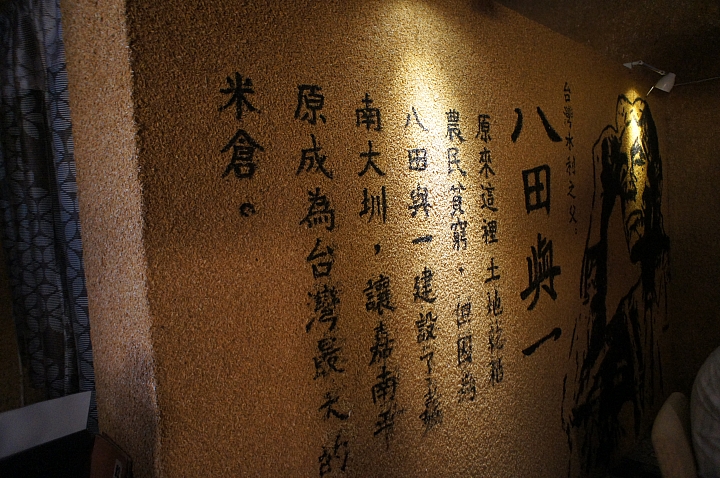 台灣水利之父。
八田與一
原來這裡土地乾稻
農民貧窮，但因為
八田與一建設了嘉
南大圳，讓嘉南平
原成為台灣最大的
米倉。